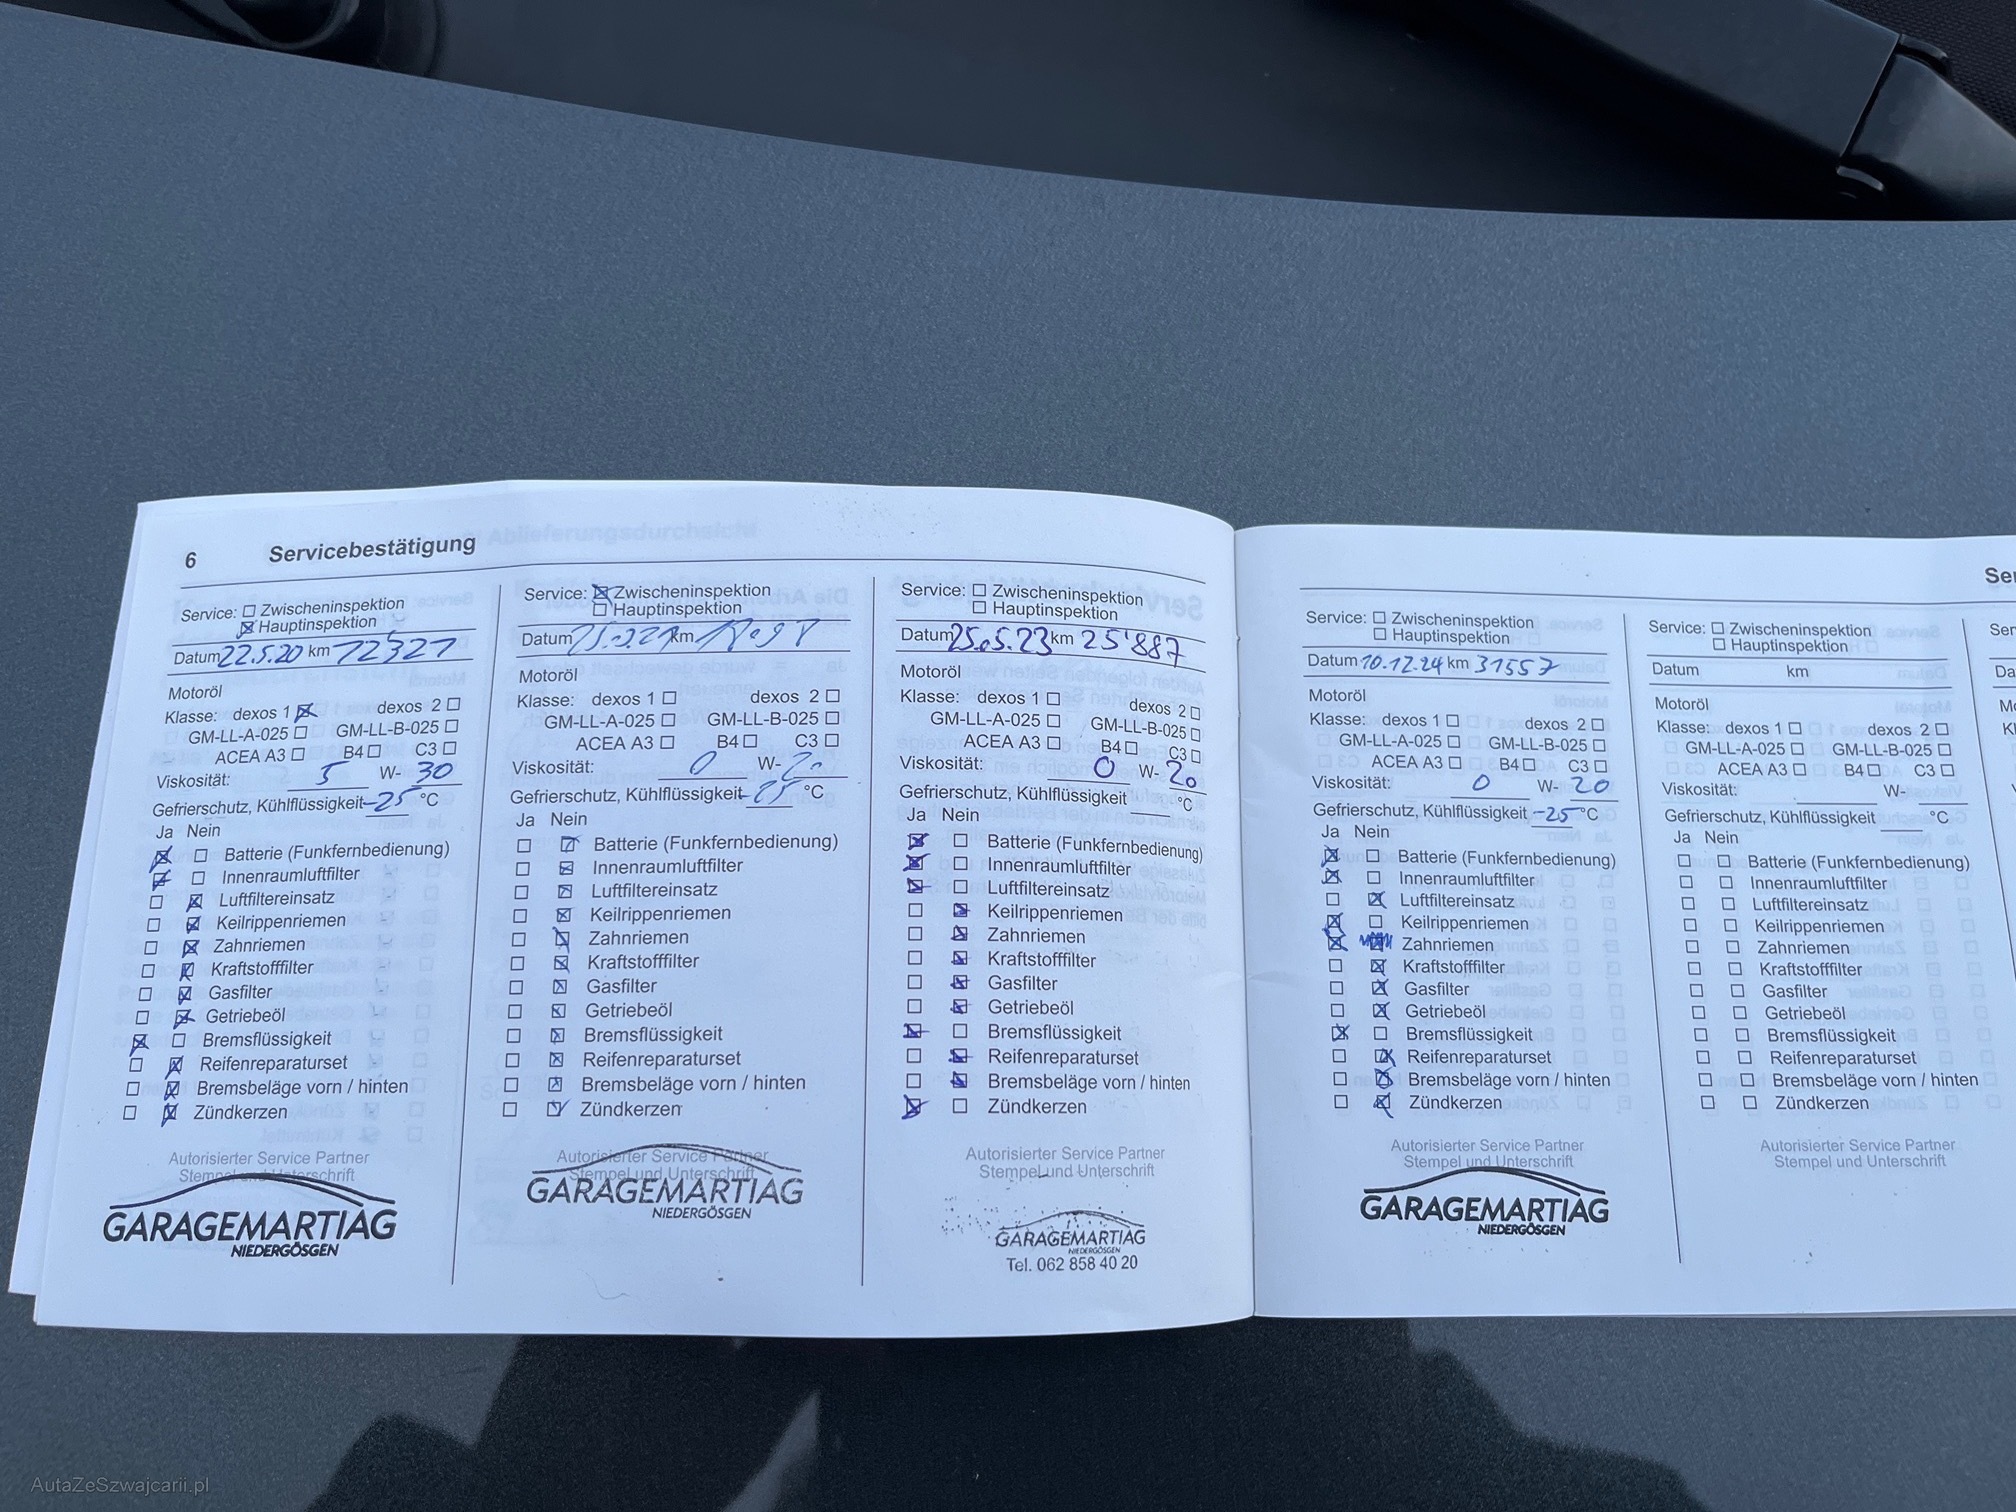 6 Servicebestätigung
Service: Zwischeninspektion
Hauptinspektion
Datum 22.5.20 km 12'321
Motoröl
Klasse: dexos 1 dexos 2
GM-LL-A-025 GM-LL-B-025
ACEA A3 B4 C3
Viskosität: 5 W- 30
Gefrierschutz, Kühlflüssigkeit -25 °C
Ja Nein
Batterie (Funkfernbedienung)
Innenraumluftfilter
Luftfiltereinsatz
Keilrippenriemen
Zahnriemen
Kraftstofffilter
Gasfilter
Getriebeöl
Bremsflüssigkeit
Reifenreparaturset
Bremsbeläge vorn / hinten
Zündkerzen
Autorisierter Service Partner
Stempel und Unterschrift
GARAGEMARTIAG
NIEDERGÖSGEN
Service: Zwischeninspektion
Hauptinspektion
Datum km
Motoröl
Klasse: dexos 1 dexos 2
GM-LL-A-025 GM-LL-B-025
ACEA A3 B4 C3
Viskosität: 0 W- 20
Gefrierschutz, Kühlflüssigkeit -25 °C
Ja Nein
Batterie (Funkfernbedienung)
Innenraumluftfilter
Luftfiltereinsatz
Keilrippenriemen
Zahnriemen
Kraftstofffilter
Gasfilter
Getriebeöl
Bremsflüssigkeit
Reifenreparaturset
Bremsbeläge vorn / hinten
Zündkerzen
Autorisierter Service Partner
Stempel und Unterschrift
GARAGEMARTIAG
NIEDERGÖSGEN
Service: Zwischeninspektion
Hauptinspektion
Datum 25.5.23 km 25'887
Motoröl
Klasse: dexos 1 dexos 2
GM-LL-A-025 GM-LL-B-025
ACEA A3 B4 C3
Viskosität: 0 W- 20
Gefrierschutz, Kühlflüssigkeit °C
Ja Nein
Batterie (Funkfernbedienung)
Innenraumluftfilter
Luftfiltereinsatz
Keilrippenriemen
Zahnriemen
Kraftstofffilter
Gasfilter
Getriebeöl
Bremsflüssigkeit
Reifenreparaturset
Bremsbeläge vorn / hinten
Zündkerzen
Autorisierter Service Partner
Stempel und Unterschrift
GARAGEMARTIAG
NIEDERGÖSGEN
Tel. 062 858 40 20
Service: Zwischeninspektion
Hauptinspektion
Datum 10.12.24 km 31557
Motoröl
Klasse: dexos 1 dexos 2
GM-LL-A-025 GM-LL-B-025
ACEA A3 B4 C3
Viskosität: 0 W- 20
Gefrierschutz, Kühlflüssigkeit -25 °C
Ja Nein
Batterie (Funkfernbedienung)
Innenraumluftfilter
Luftfiltereinsatz
Keilrippenriemen
Zahnriemen
Kraftstofffilter
Gasfilter
Getriebeöl
Bremsflüssigkeit
Reifenreparaturset
Bremsbeläge vorn / hinten
Zündkerzen
Autorisierter Service Partner
Stempel und Unterschrift
GARAGEMARTIAG
NIEDERGÖSGEN
Service: Zwischeninspektion
Hauptinspektion
Datum km
Motoröl
Klasse: dexos 1 dexos 2
GM-LL-A-025 GM-LL-B-025
ACEA A3 B4 C3
Viskosität: W-
Gefrierschutz, Kühlflüssigkeit °C
Ja Nein
Batterie (Funkfernbedienung)
Innenraumluftfilter
Luftfiltereinsatz
Keilrippenriemen
Zahnriemen
Kraftstofffilter
Gasfilter
Getriebeöl
Bremsflüssigkeit
Reifenreparaturset
Bremsbeläge vorn / hinten
Zündkerzen
Autorisierter Service Partner
Stempel und Unterschrift
AutaZeSzwajcarii.pl